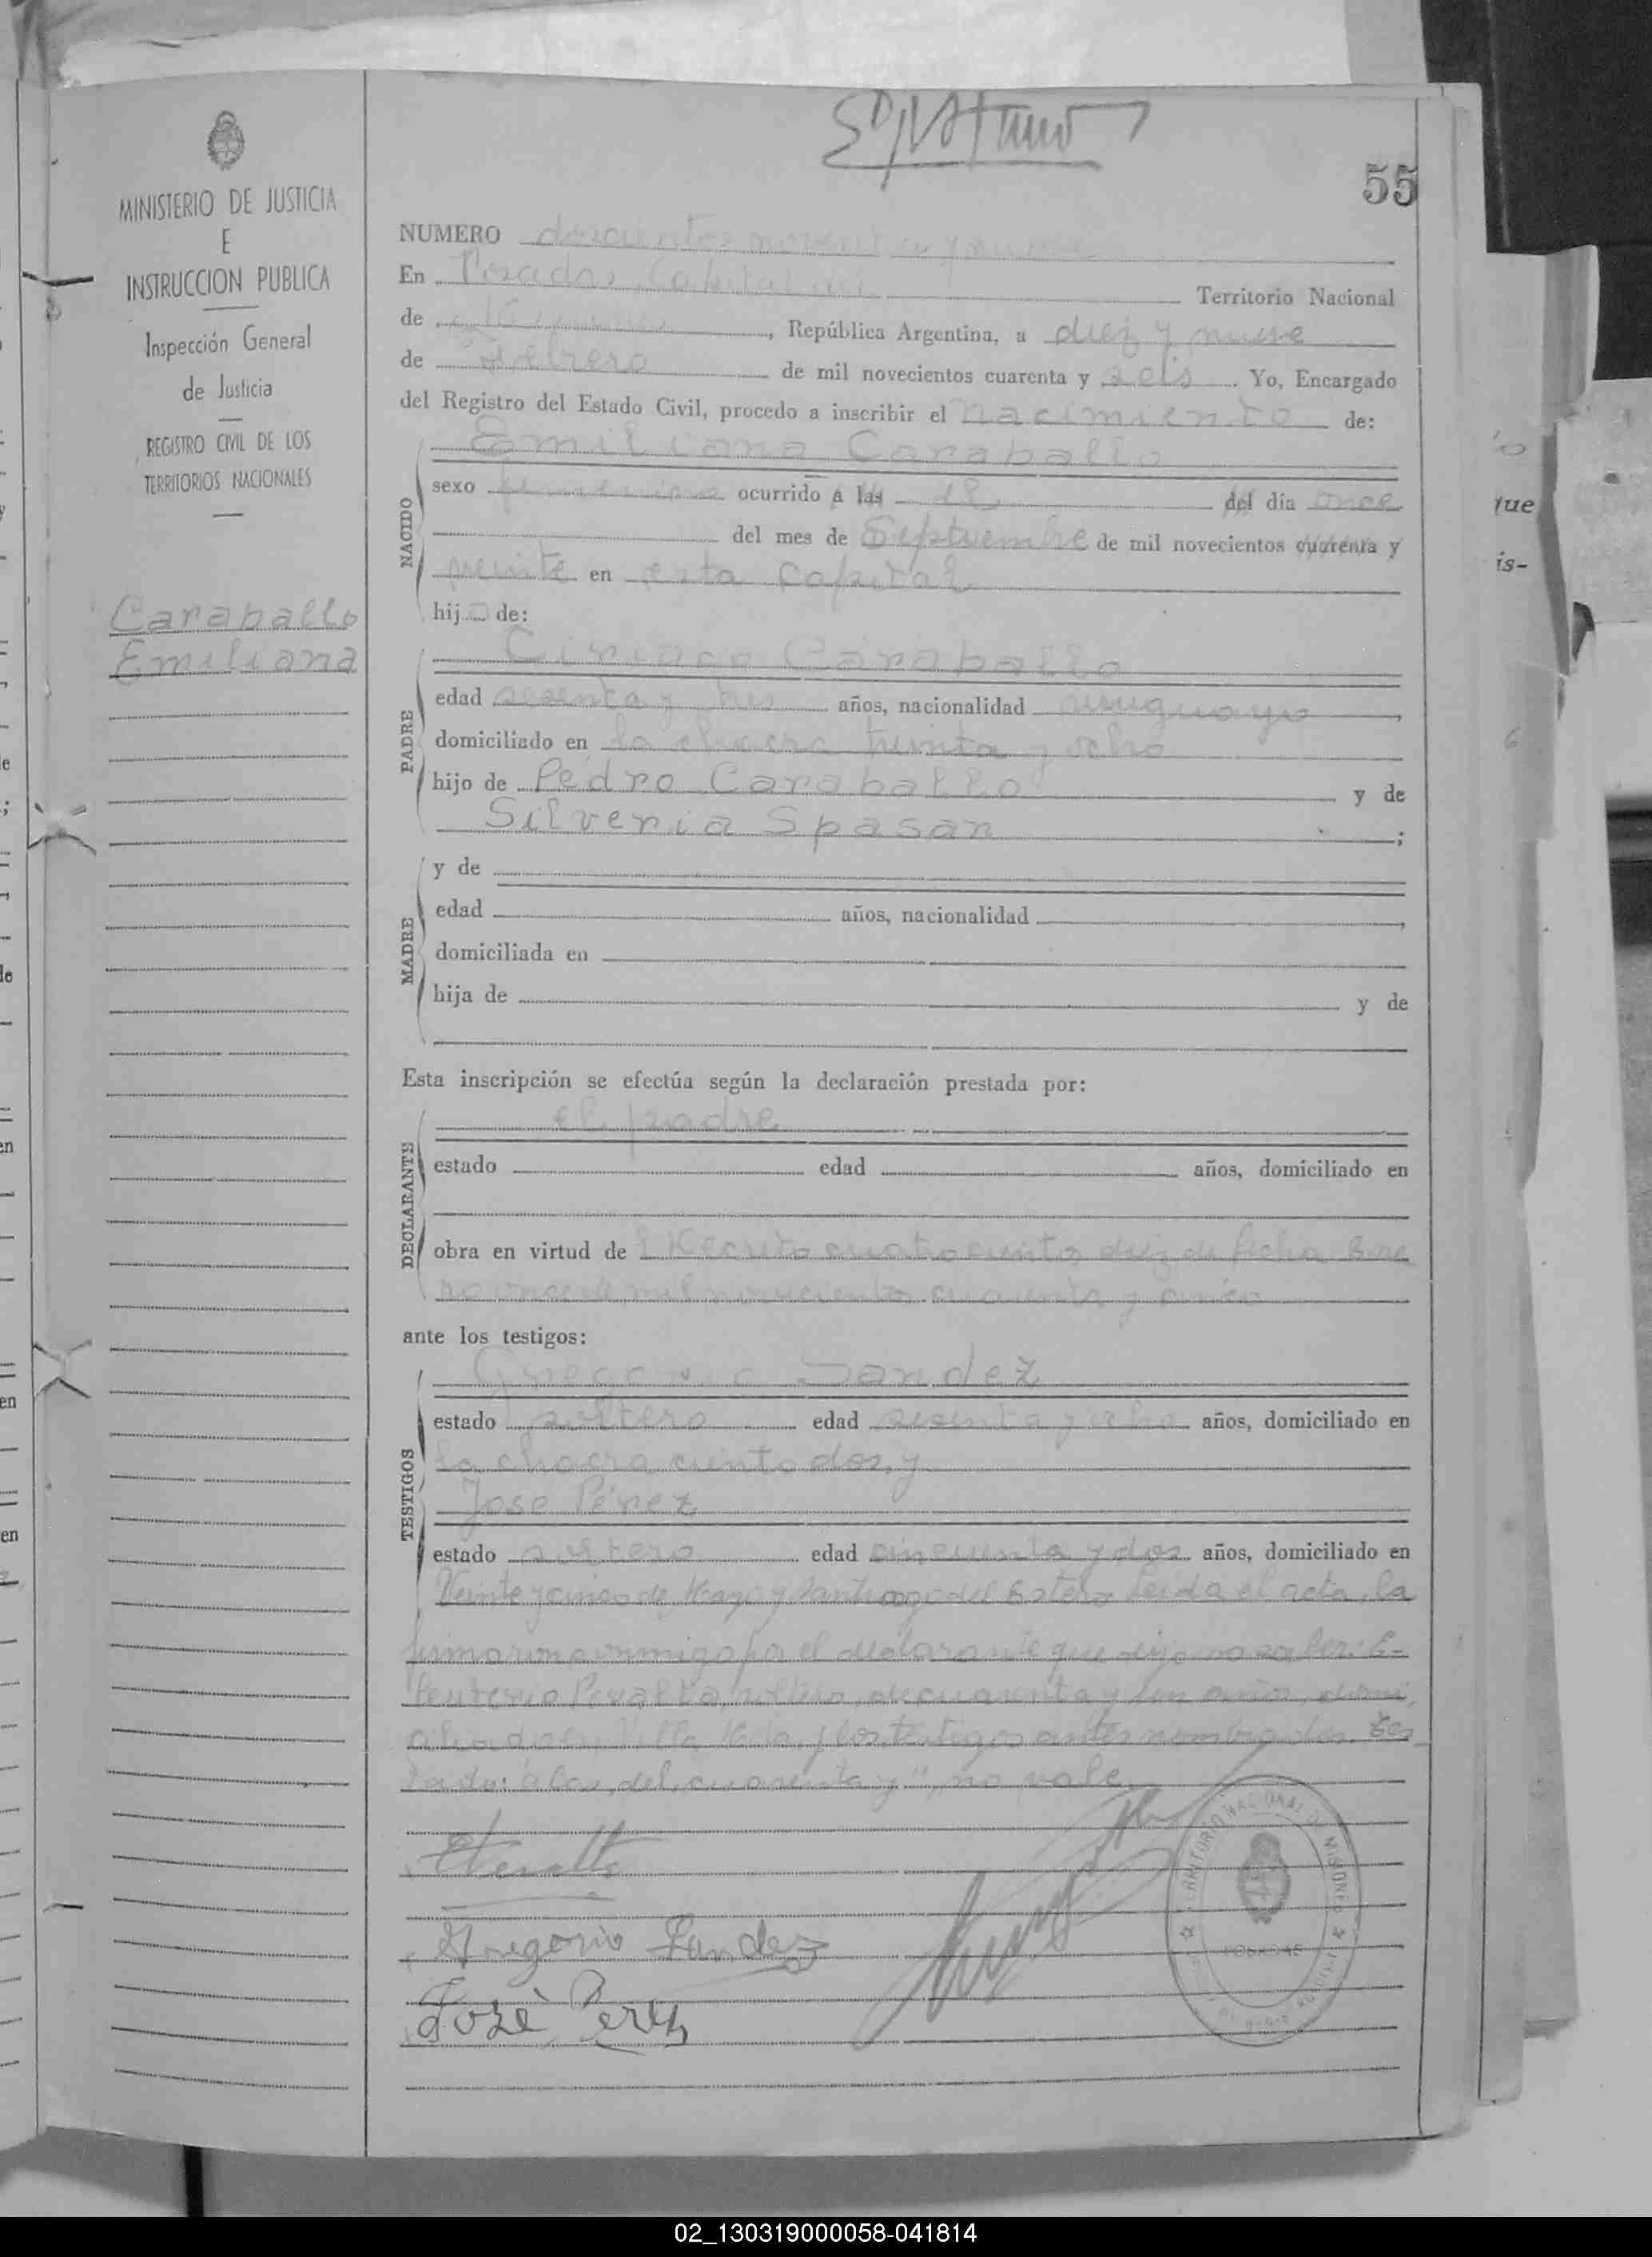 MINISTERIO DE JUSTICIA
E
INSTRUCCION PUBLICA
Inspección General
de Justicia
REGISTRO CIVIL DE LOS
TERRITORIOS NACIONALES
Caraballo
Emiliana
55
NUMERO doscientos noventa y nueve
En Posadas, Capital del Territorio Nacional
de Misiones, República Argentina, a diez y nueve
de Febrero de mil novecientos cuarenta y seis. Yo, Encargado
del Registro del Estado Civil, procedo a inscribir el nacimiento de:
NACIDO
Emiliana Caraballo
sexo femenino ocurrido a las del día once
del mes de Septiembre de mil novecientos cuarenta y
veinte en esta Capital
hija de:
PADRE
Ciriaco Caraballo
edad sesenta y tres años, nacionalidad uruguayo,
domiciliado en la chacra treinta y ocho
hijo de Pedro Caraballo y de
Silveria Spasan;
MADRE
y de
edad años, nacionalidad,
domiciliada en
hija de y de
Esta inscripción se efectúa según la declaración prestada por:
DECLARANTE
el padre
estado edad años, domiciliado en
obra en virtud de Decreto cuatrocientos diez de fecha Ene
ro once de mil novecientos cuarenta y cinco
ante los testigos:
TESTIGOS
Gregorio Sandez
estado soltero edad sesenta y ocho años, domiciliado en
la chacra ciento dos, y
José Pérez
estado soltero edad cincuenta y dos años, domiciliado en
Veinte y cinco de Mayo y Santiago del Estero. Leida el acta, la
firma por el declarante que dijo no saber: E-
leuterio Peralta, soltero, de cuarenta y años, domi
ciliado en Villa y los testigos antes nombrados. Tes
tado: "a las, del, cuarenta y", no vale.
Peralta
Gregorio Sandez
José Perez
TERRITORIO NACIONAL DE MISIONES
POSADAS
02_130319000058-041814